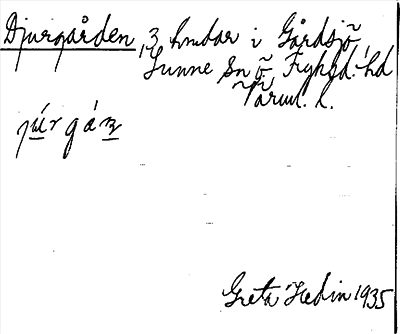 Djurgården, 3 hmdar i Gårdsjö
Sunne sn ö Fryksd. hd
Värml. l.
júrgáṉ
Greta Hedin 1935